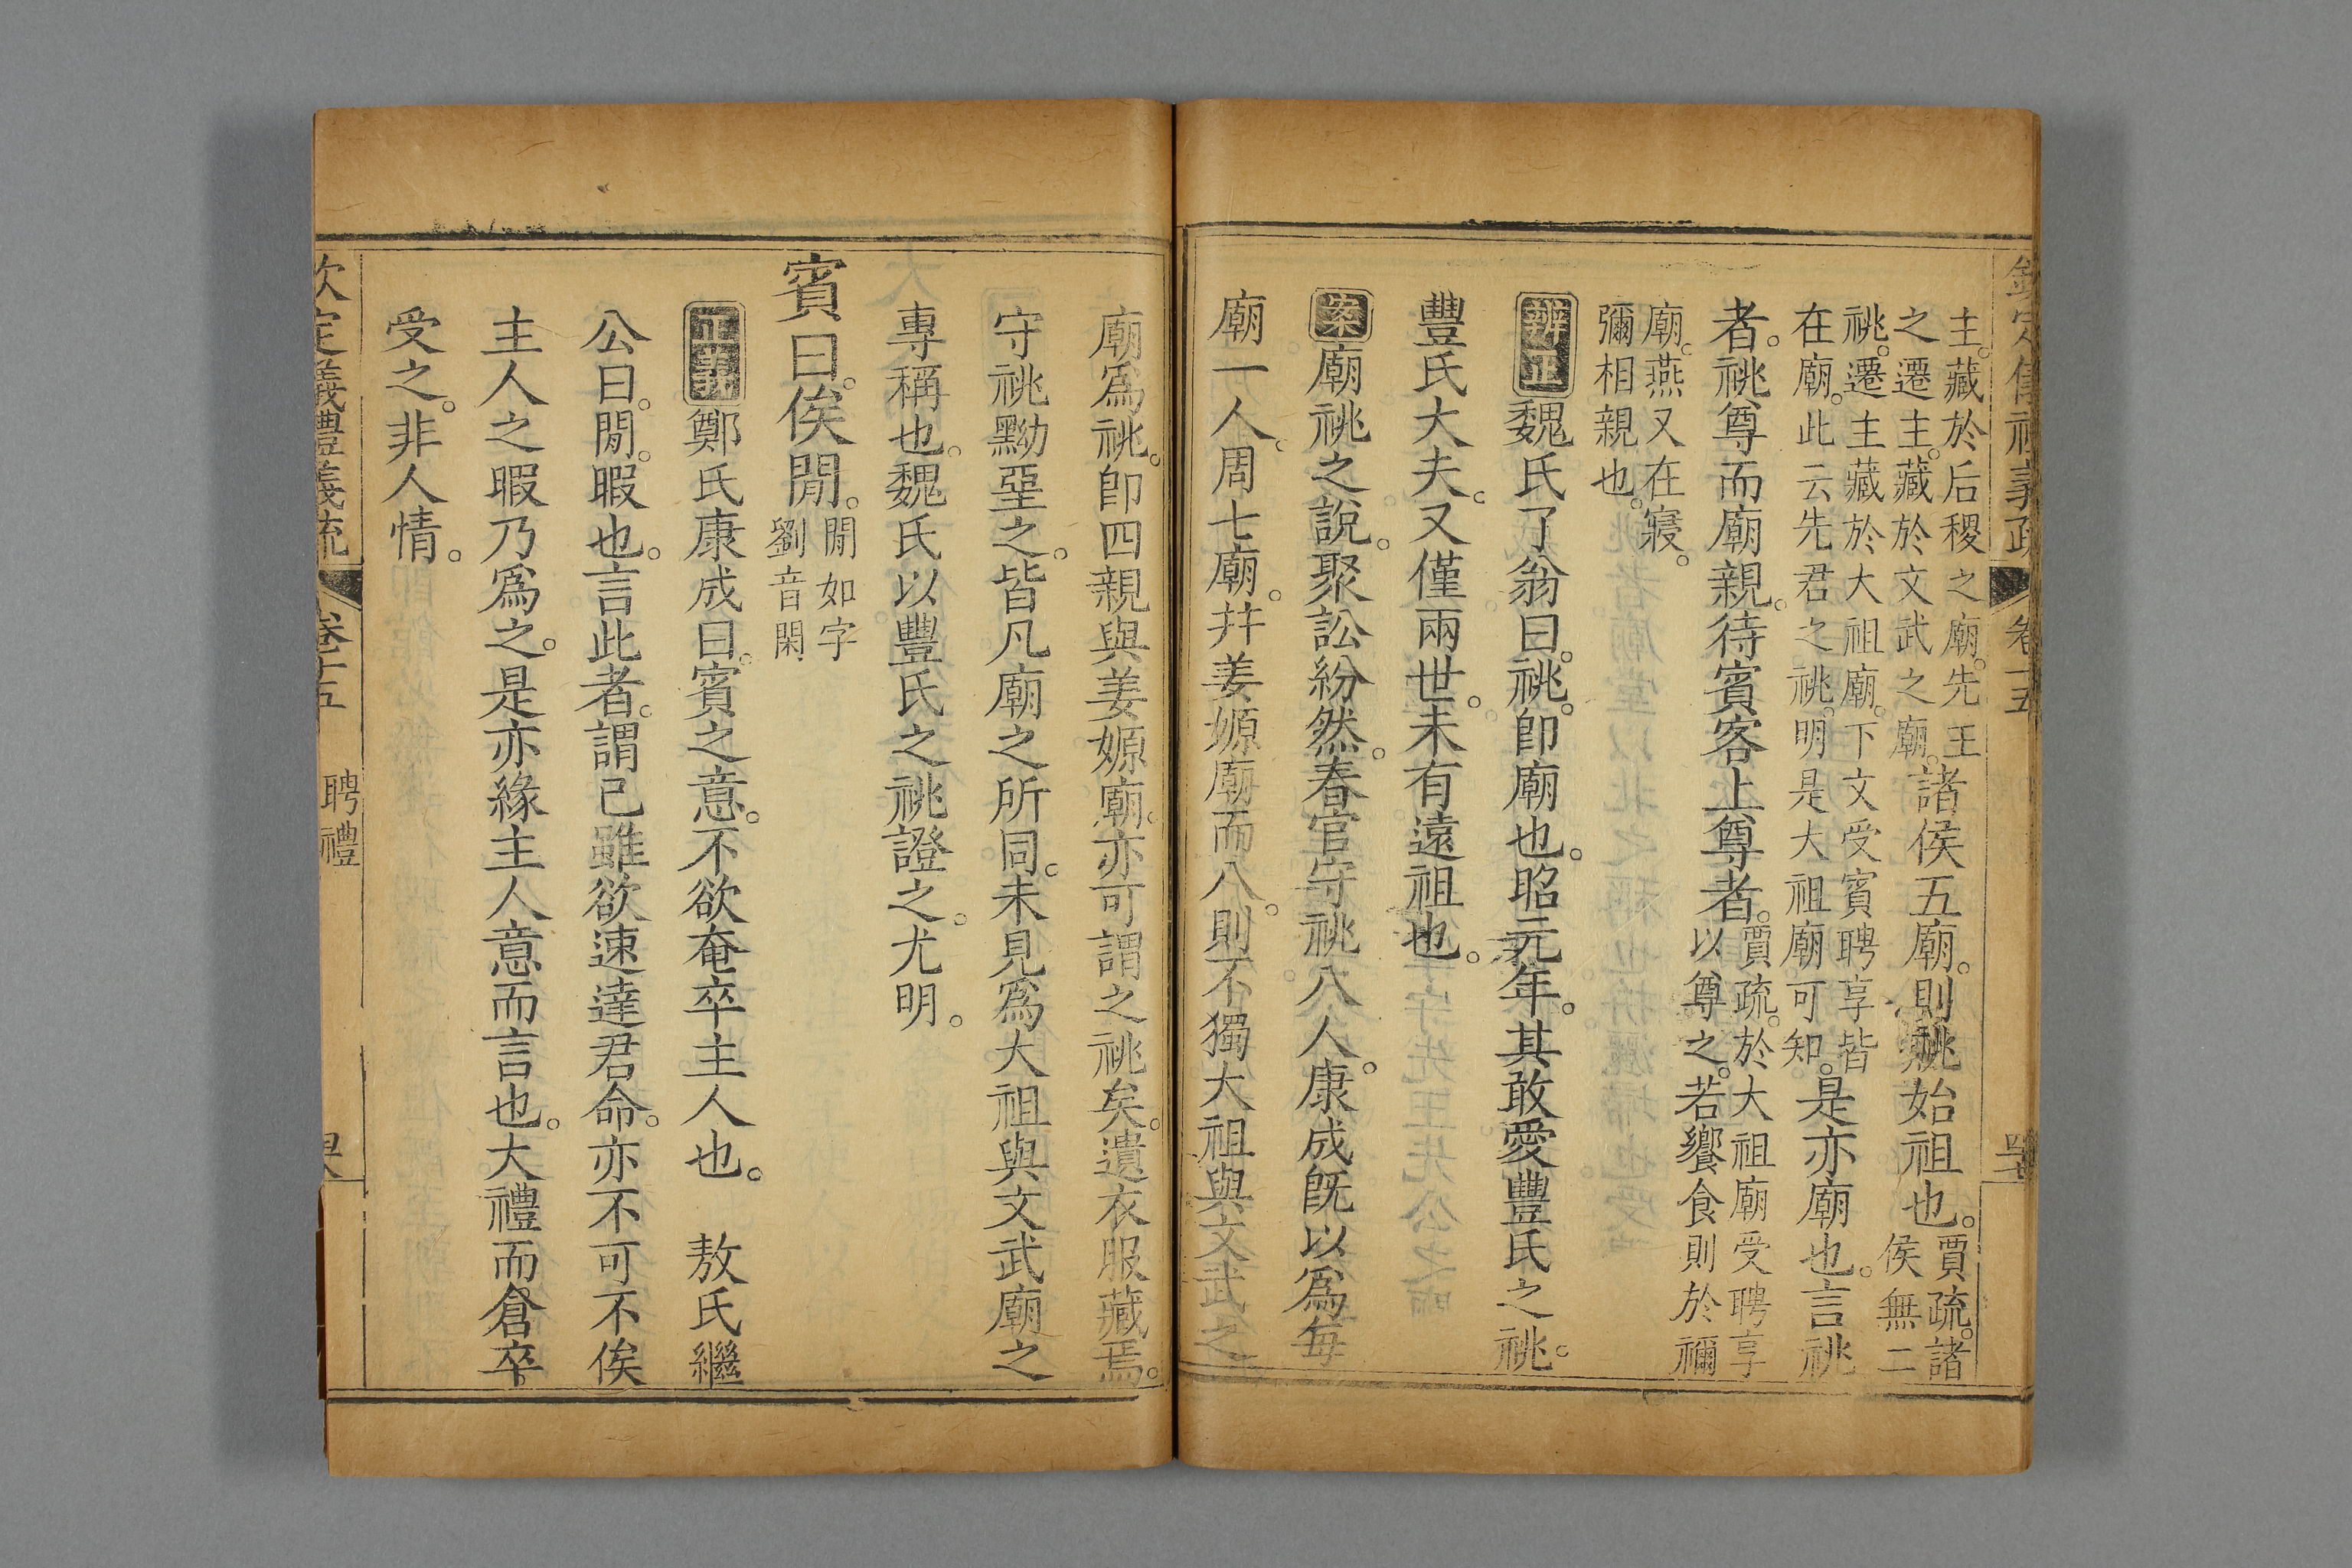 欽定儀禮義疏 卷十五
主。藏於后稷之廟。先王
之遷主。藏於文武之廟。
諸侯五廟。則祧始祖也。
賈疏。諸
侯無二
祧。遷主藏於大祖廟。下文受賓聘享皆
在廟。此云先君之祧。明是大祖廟可知。
是亦廟也。言祧
者。祧尊而廟親。待賓客上尊者。
賈疏。於大祖廟受聘享
以尊之。若饗食則於禰
廟。燕又在寢。
彌相親也。
辨正魏氏了翁曰。祧。卽廟也。昭元年。其敢愛豐氏之祧。
豐氏大夫。又僅兩世。未有遠祖也。
案廟祧之說。聚訟紛然。春官守祧八人。康成旣以爲每
廟一人。周七廟。幷姜嫄廟而八。則不獨大祖與文武之
廟爲祧。卽四親與姜嫄廟。亦可謂之祧矣。遺衣服藏焉。
守祧黝堊之。皆凡廟之所同。未見爲大祖與文武廟之
專稱也。魏氏以豐氏之祧證之。尤明。
賓曰。俟閒。
閒如字
劉音閑
正義鄭氏康成曰。賓之意。不欲奄卒主人也。 敖氏繼
公曰。閒。暇也。言此者。謂已雖欲速達君命。亦不可不俟
主人之暇乃爲之。是亦緣主人意而言也。大禮而倉卒
受之。非人情。
欽定儀禮義疏 卷十五 聘禮